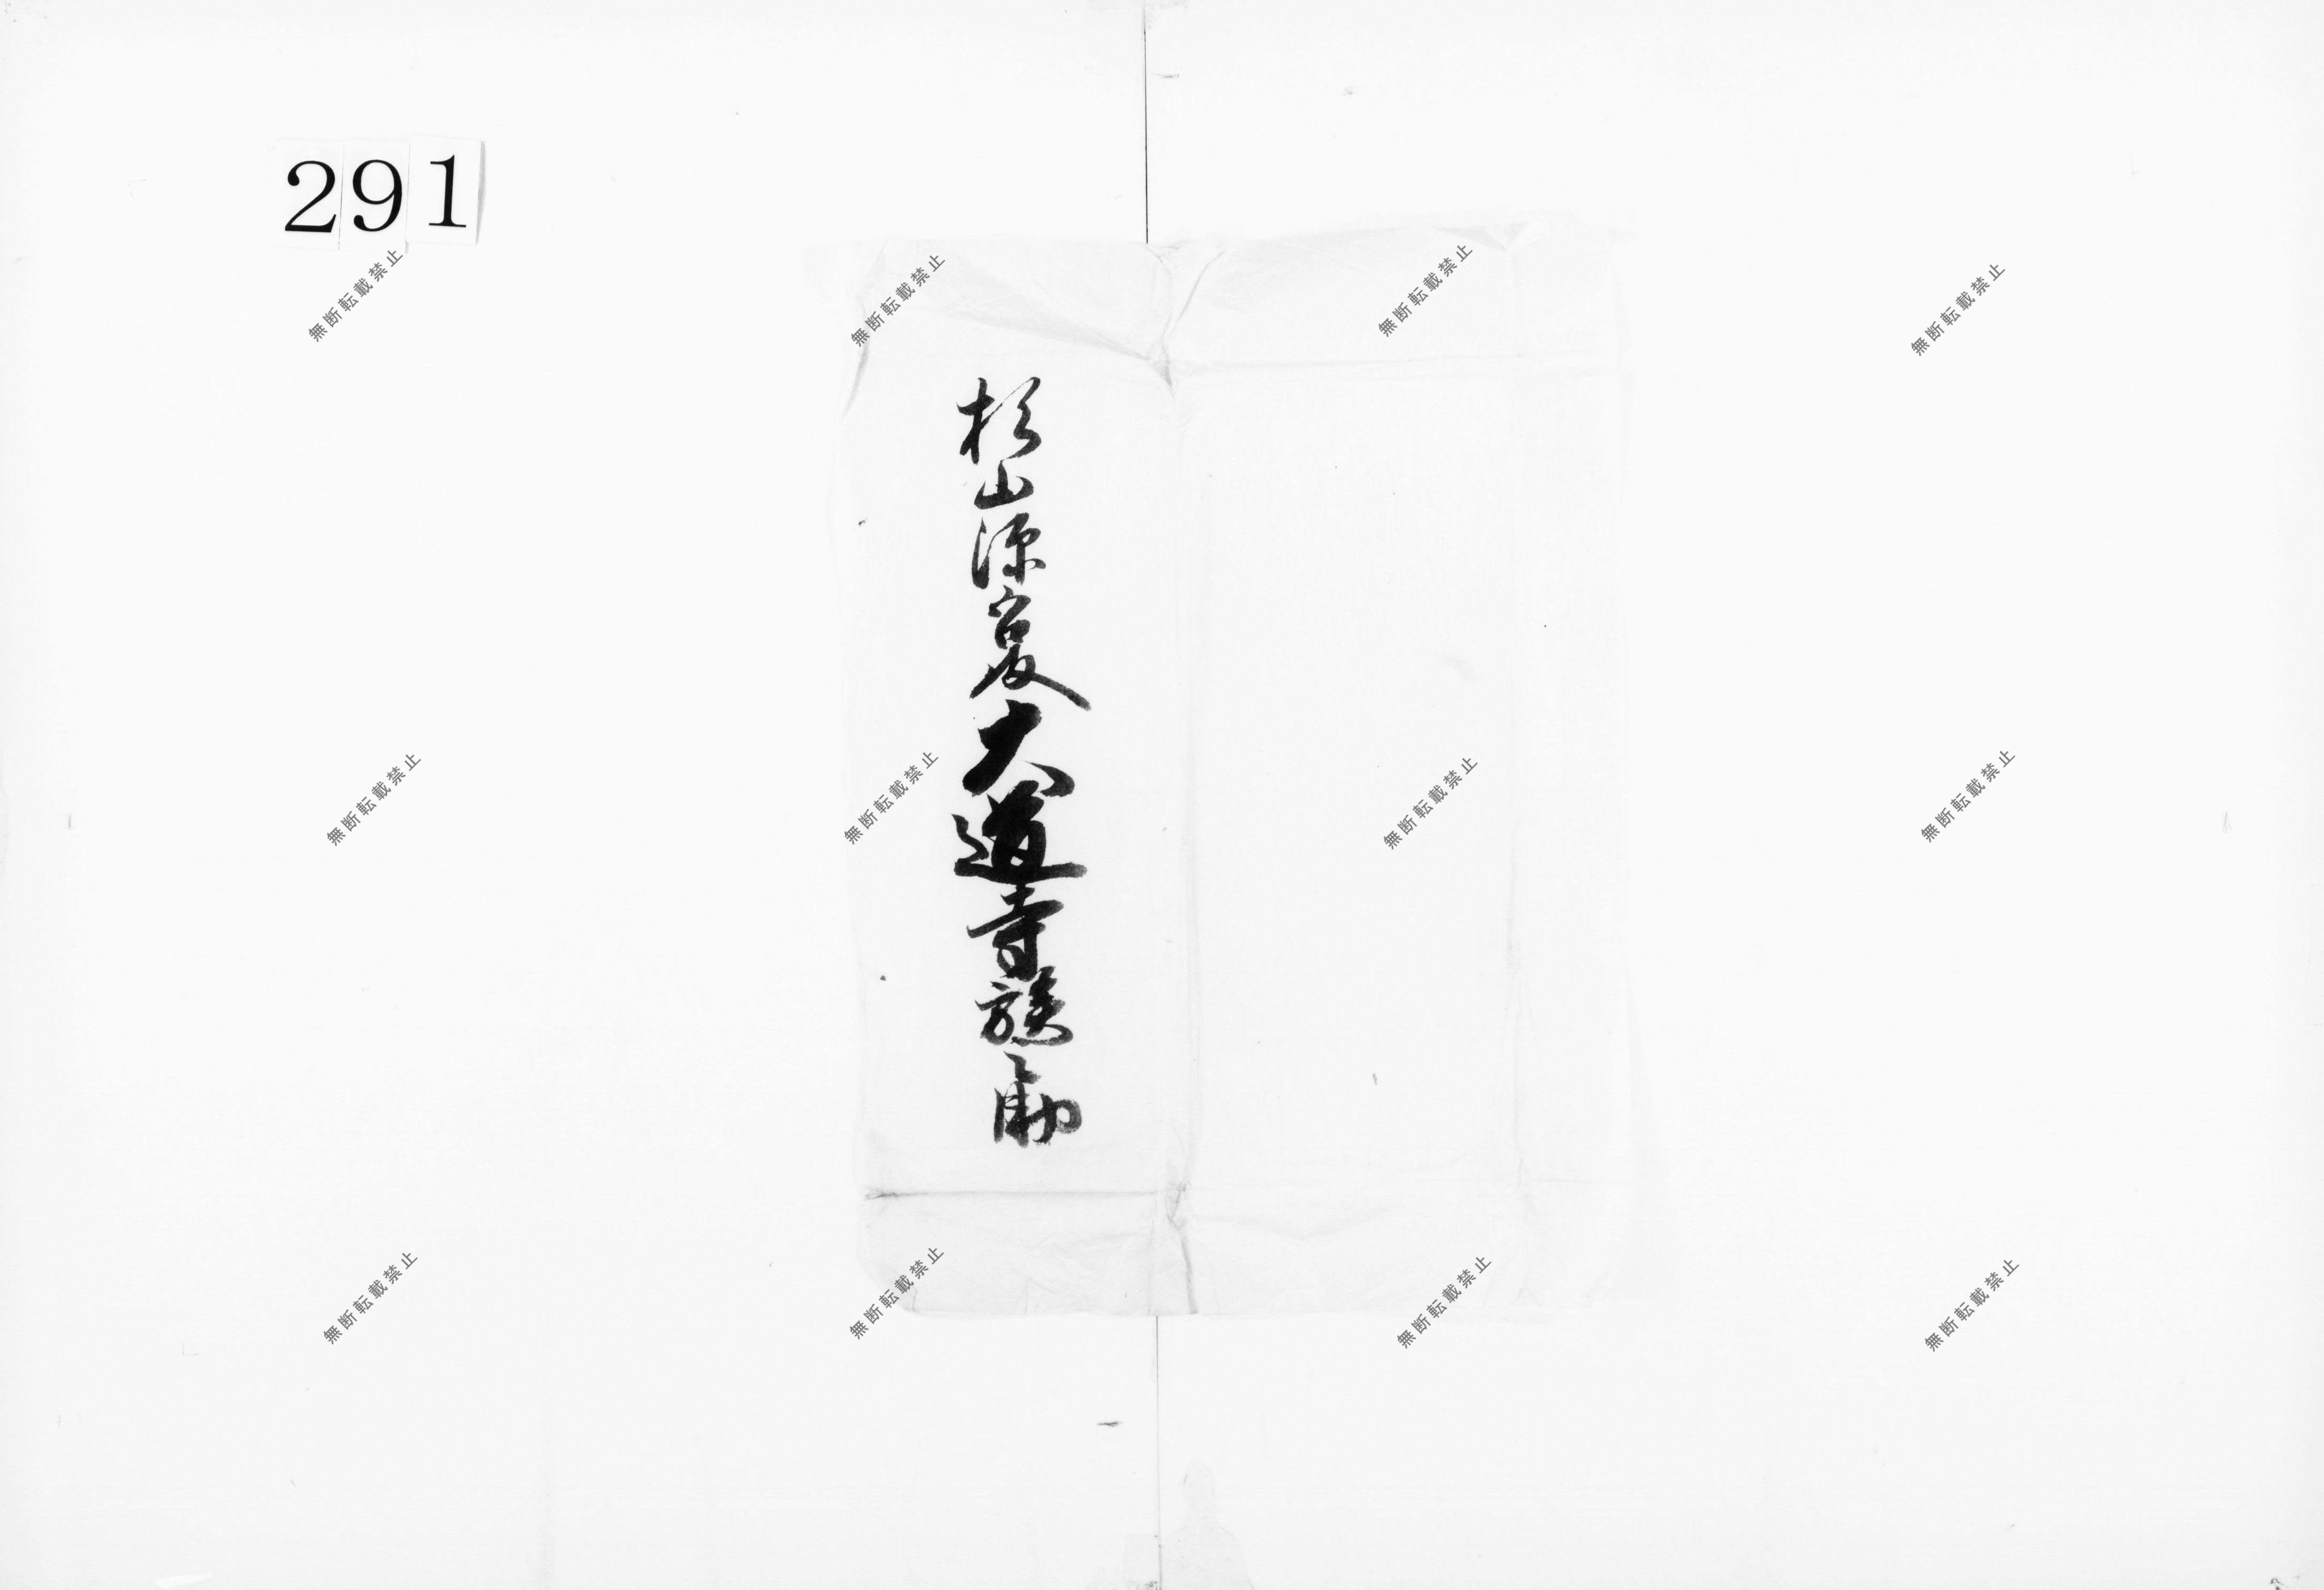 291
杉山源宮殿大道寺族之助
無断転載禁止
無断転載禁止
無断転載禁止
無断転載禁止
無断転載禁止
無断転載禁止
無断転載禁止
無断転載禁止
無断転載禁止
無断転載禁止
無断転載禁止
無断転載禁止